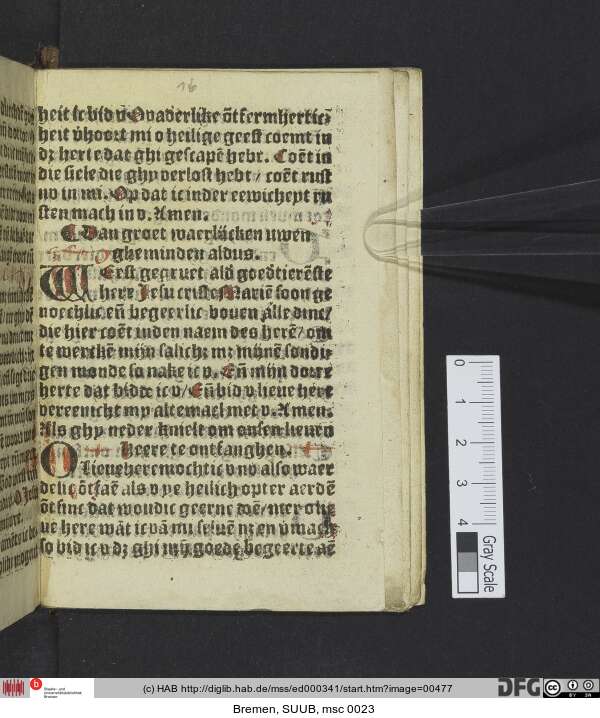 16
heit ic bid v O vaderlike ōtfermhertic=
heit v̄hoort mi o heilige geest coemt in
dꝫ herte dat ghi gescapē hebt. Coēt in
die siele die ghy verlost hebt / coēt rust
nv in mi. Op dat ic in der eewicheyt ru
sten mach in v. Amen.
Van groet waerlijcken uwen
gheminden aldus.
Weest gegruet als goedtierēste
here Jesu criste Mariē soon ge
noechlic eñ begeerlic boven alle dinc/
die hier coēt inden naem des herē/ om
te werckē mijn salich; mꝫ mijnē sondi=
gen monde so nake ic v. Eñ mijn dorre
herte dat bidt ic v/ Eñ bid v lieve here
vereenicht my altemael met v. Amen.
Als ghy neder knielt om onsen lieven
heere te ontfanghen.
O lieve here mochtic v nv also waer
delic ōtfaē als v ye heilich op ter aerdē
ōtfinc dat woudic geerne doē/ mer o lie
ve here wāt ic vā mi selvē nꝫ en v̄mach
so bid ic v dꝫ ghi mȳ goede begeerte aē
Gray Scale
0
1
2
3
4
Staats- und
Universitätsbibliothek
Bremen
(c) HAB http://diglib.hab.de/mss/ed000341/start.htm?image=00477
DFG
CC BY SA
Bremen, SUUB, msc 0023